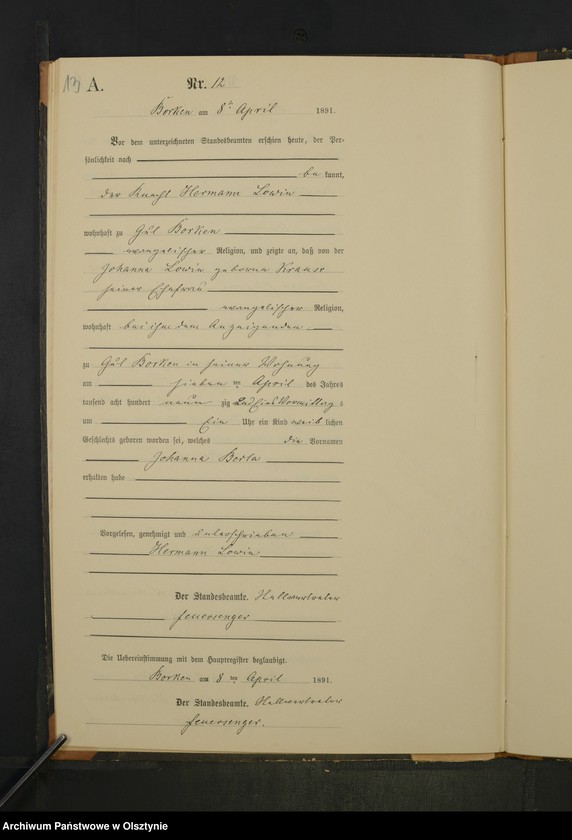 13
A.
Nr. 12
Borken am 8ten April 1891.
Vor dem unterzeichneten Standesbeamten erschien heute, der Per-
sönlichkeit nach
be kannt,
der Knecht Hermann Lowin
wohnhaft zu Gut Borken
evangelischer Religion, und zeigte an, daß von der
Johanna Lowin geborene Krause
seiner Ehefrau
evangelischer Religion,
wohnhaft bei ihm dem Anzeigenden
zu Gut Borken in seiner Wohnung
am sieben ten April des Jahres
tausend acht hundert neun zig und Eins Vormittags
um Ein Uhr ein Kind weib lichen
Geschlechts geboren worden sei, welches die Vornamen
Johanna
erhalten habe
Vorgelesen, genehmigt und unterschrieben
Hermann Lowin
Der Standesbeamte. Stellvertreter
Feuersenger
Die Uebereinstimmung mit dem Hauptregister beglaubigt.
Borken am 8 ten April 1891.
Der Standesbeamte. Stellvertreter
Feuersenger.
Archiwum Państwowe w Olsztynie